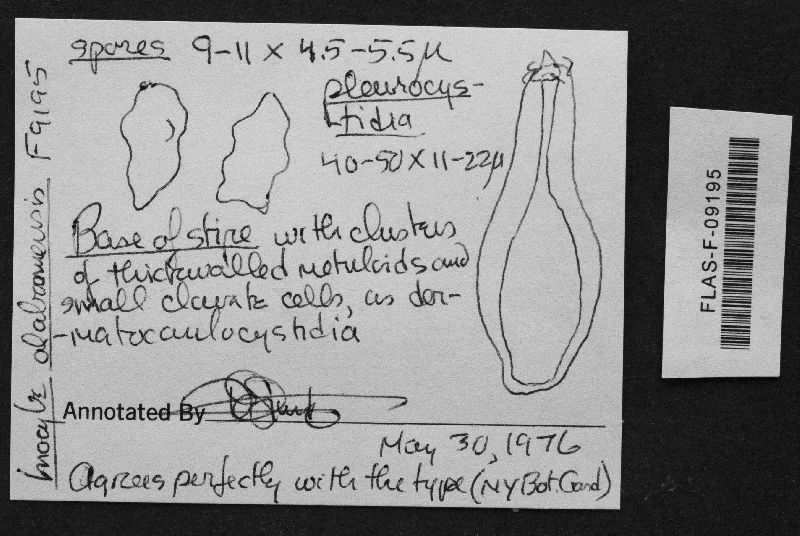 spores 9-11 x 4.5-5.5µ
pleurocys-
-tidia
40-50 x 11-22µ
Base of stipe with clusters
of thickwalled metuloids and
small clavate cells, as der-
-matocaulocystidia
Annotated By
May 30, 1976
Agrees perfectly with the type (NY Bot. Gard)
Inocybe alabamensis F9195
FLAS-F-09195